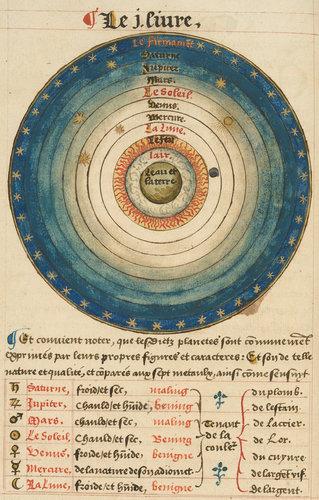 Le j. liure,
Le firmament
Saturne
Jupiter
Mars.
Le Soleil
Venus.
Mercure.
La Lune.
Le feu
lair.
Leau et
la terre
Et conuient noter, que lesd
planetes sont communement
par leurs propres figures et caracteres: Et son de telle
nature et qualite, et comparés aux sept metaulx, ainsi comme sensuyt
♄ Saturne, froid et sec, maling du plomb.
♃ Jupiter, Chauld et humide, benning de lestain
♂ Mars: chauld et sec, maling de lacier.
☉ Le Soleil Chauld et sec, Bening Tenant de la de Lor.
♀ Venus, froid et humide, benigne du cuyure
☿ Mercure, de la nature de son adioinct de larget vif.
☾ La Lune, froid et humide, bening de largent.